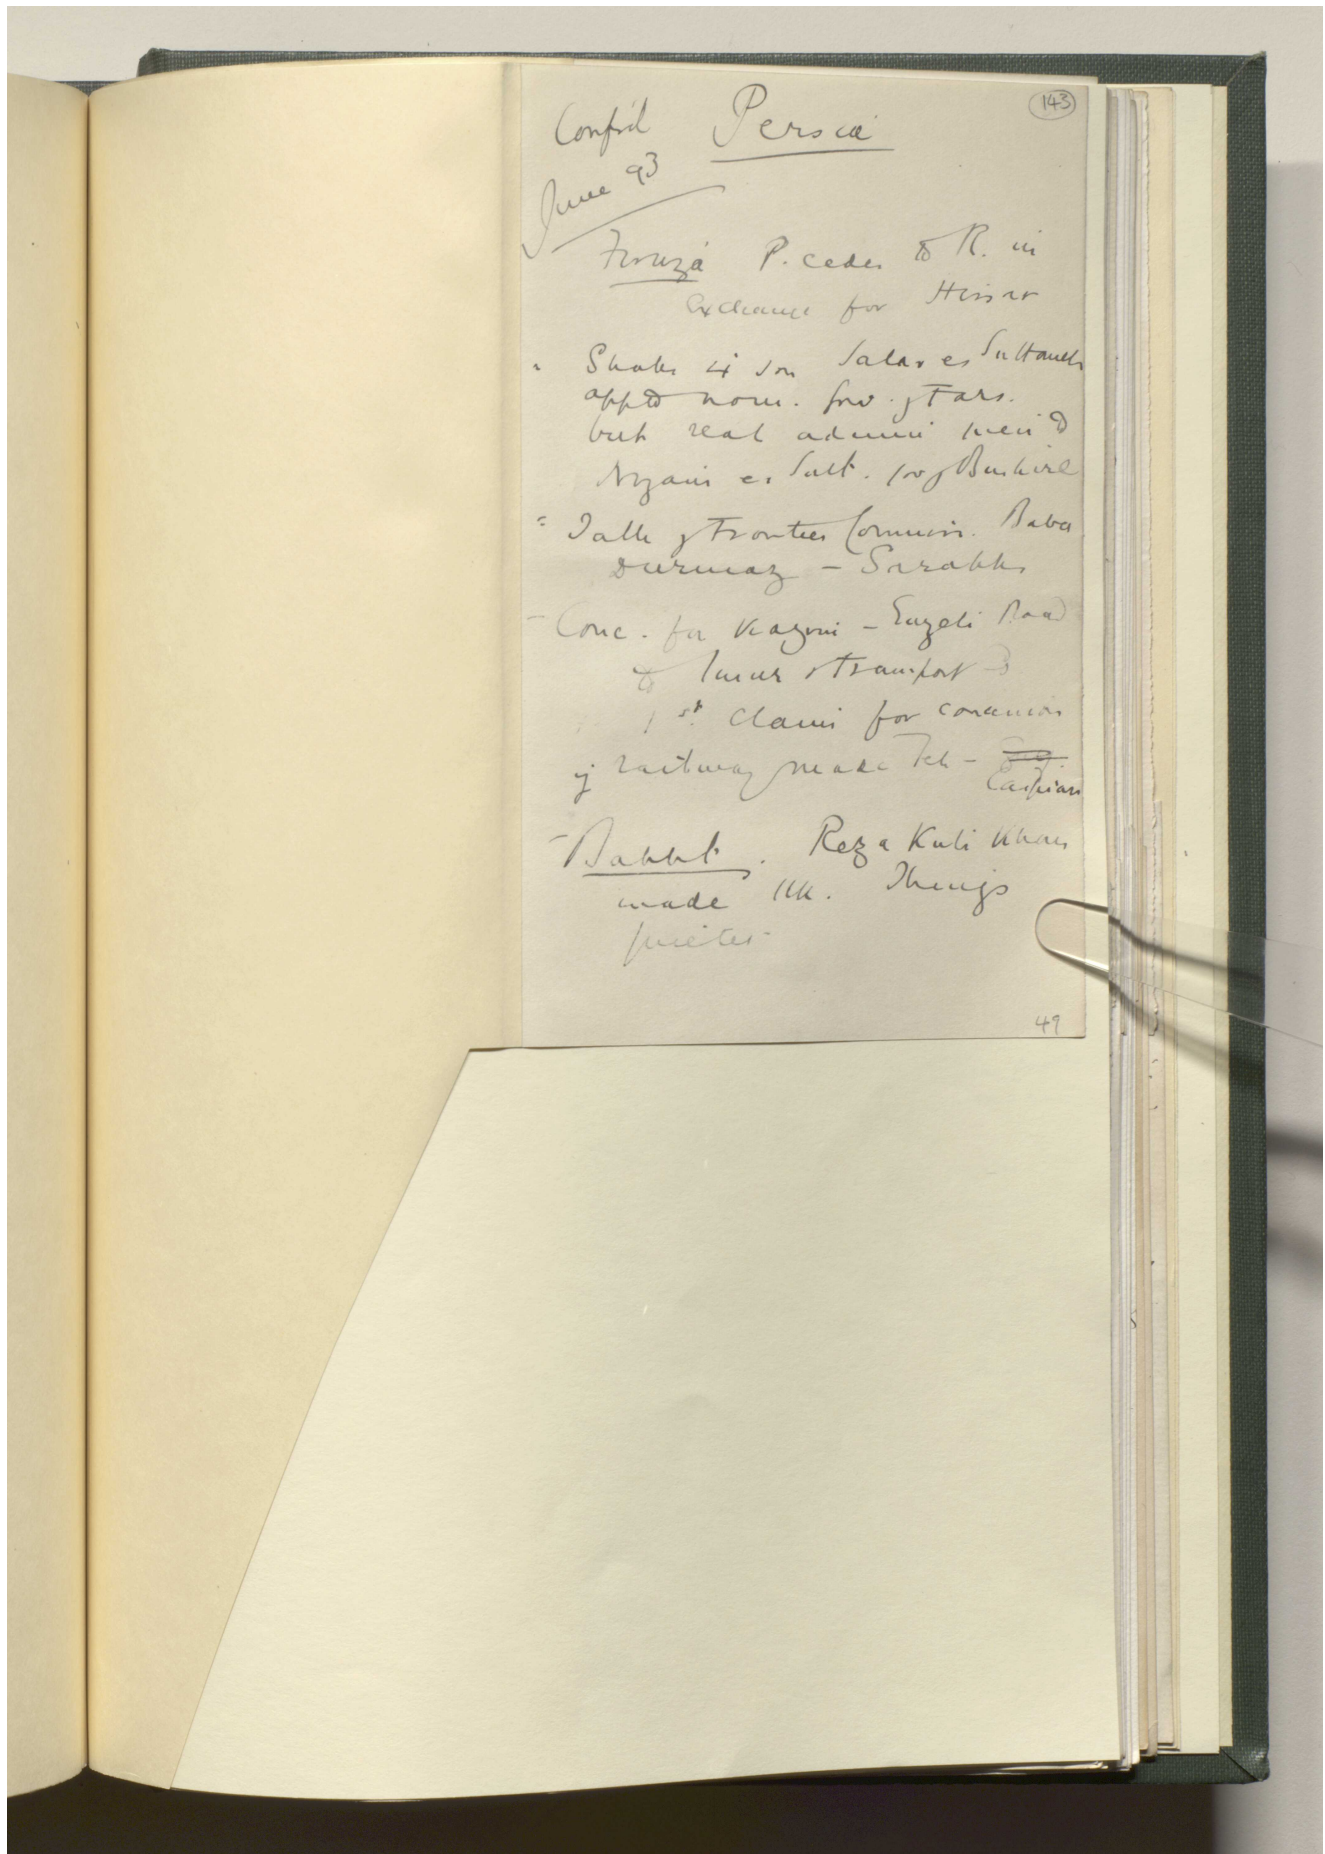 143
Confid Persia
June 93
Firuza P. cedes to R. in
exchange for Hissar
Shahs 4 son Salar es Sultaneh
appd nom. Gov. of Fars.
but real admin
Nizam es Sult. Gov of Bushire
Talk of Frontier Commin. Baba
Durmaz – Sarakhs
– Conc. for Kazvin – Enzeli Road
to Insur & Transport
1st claim for concession
if railway made Teh –
Caspian
– Bakht. Reza Kuli Khan
made Ilk. Things
quieter
49